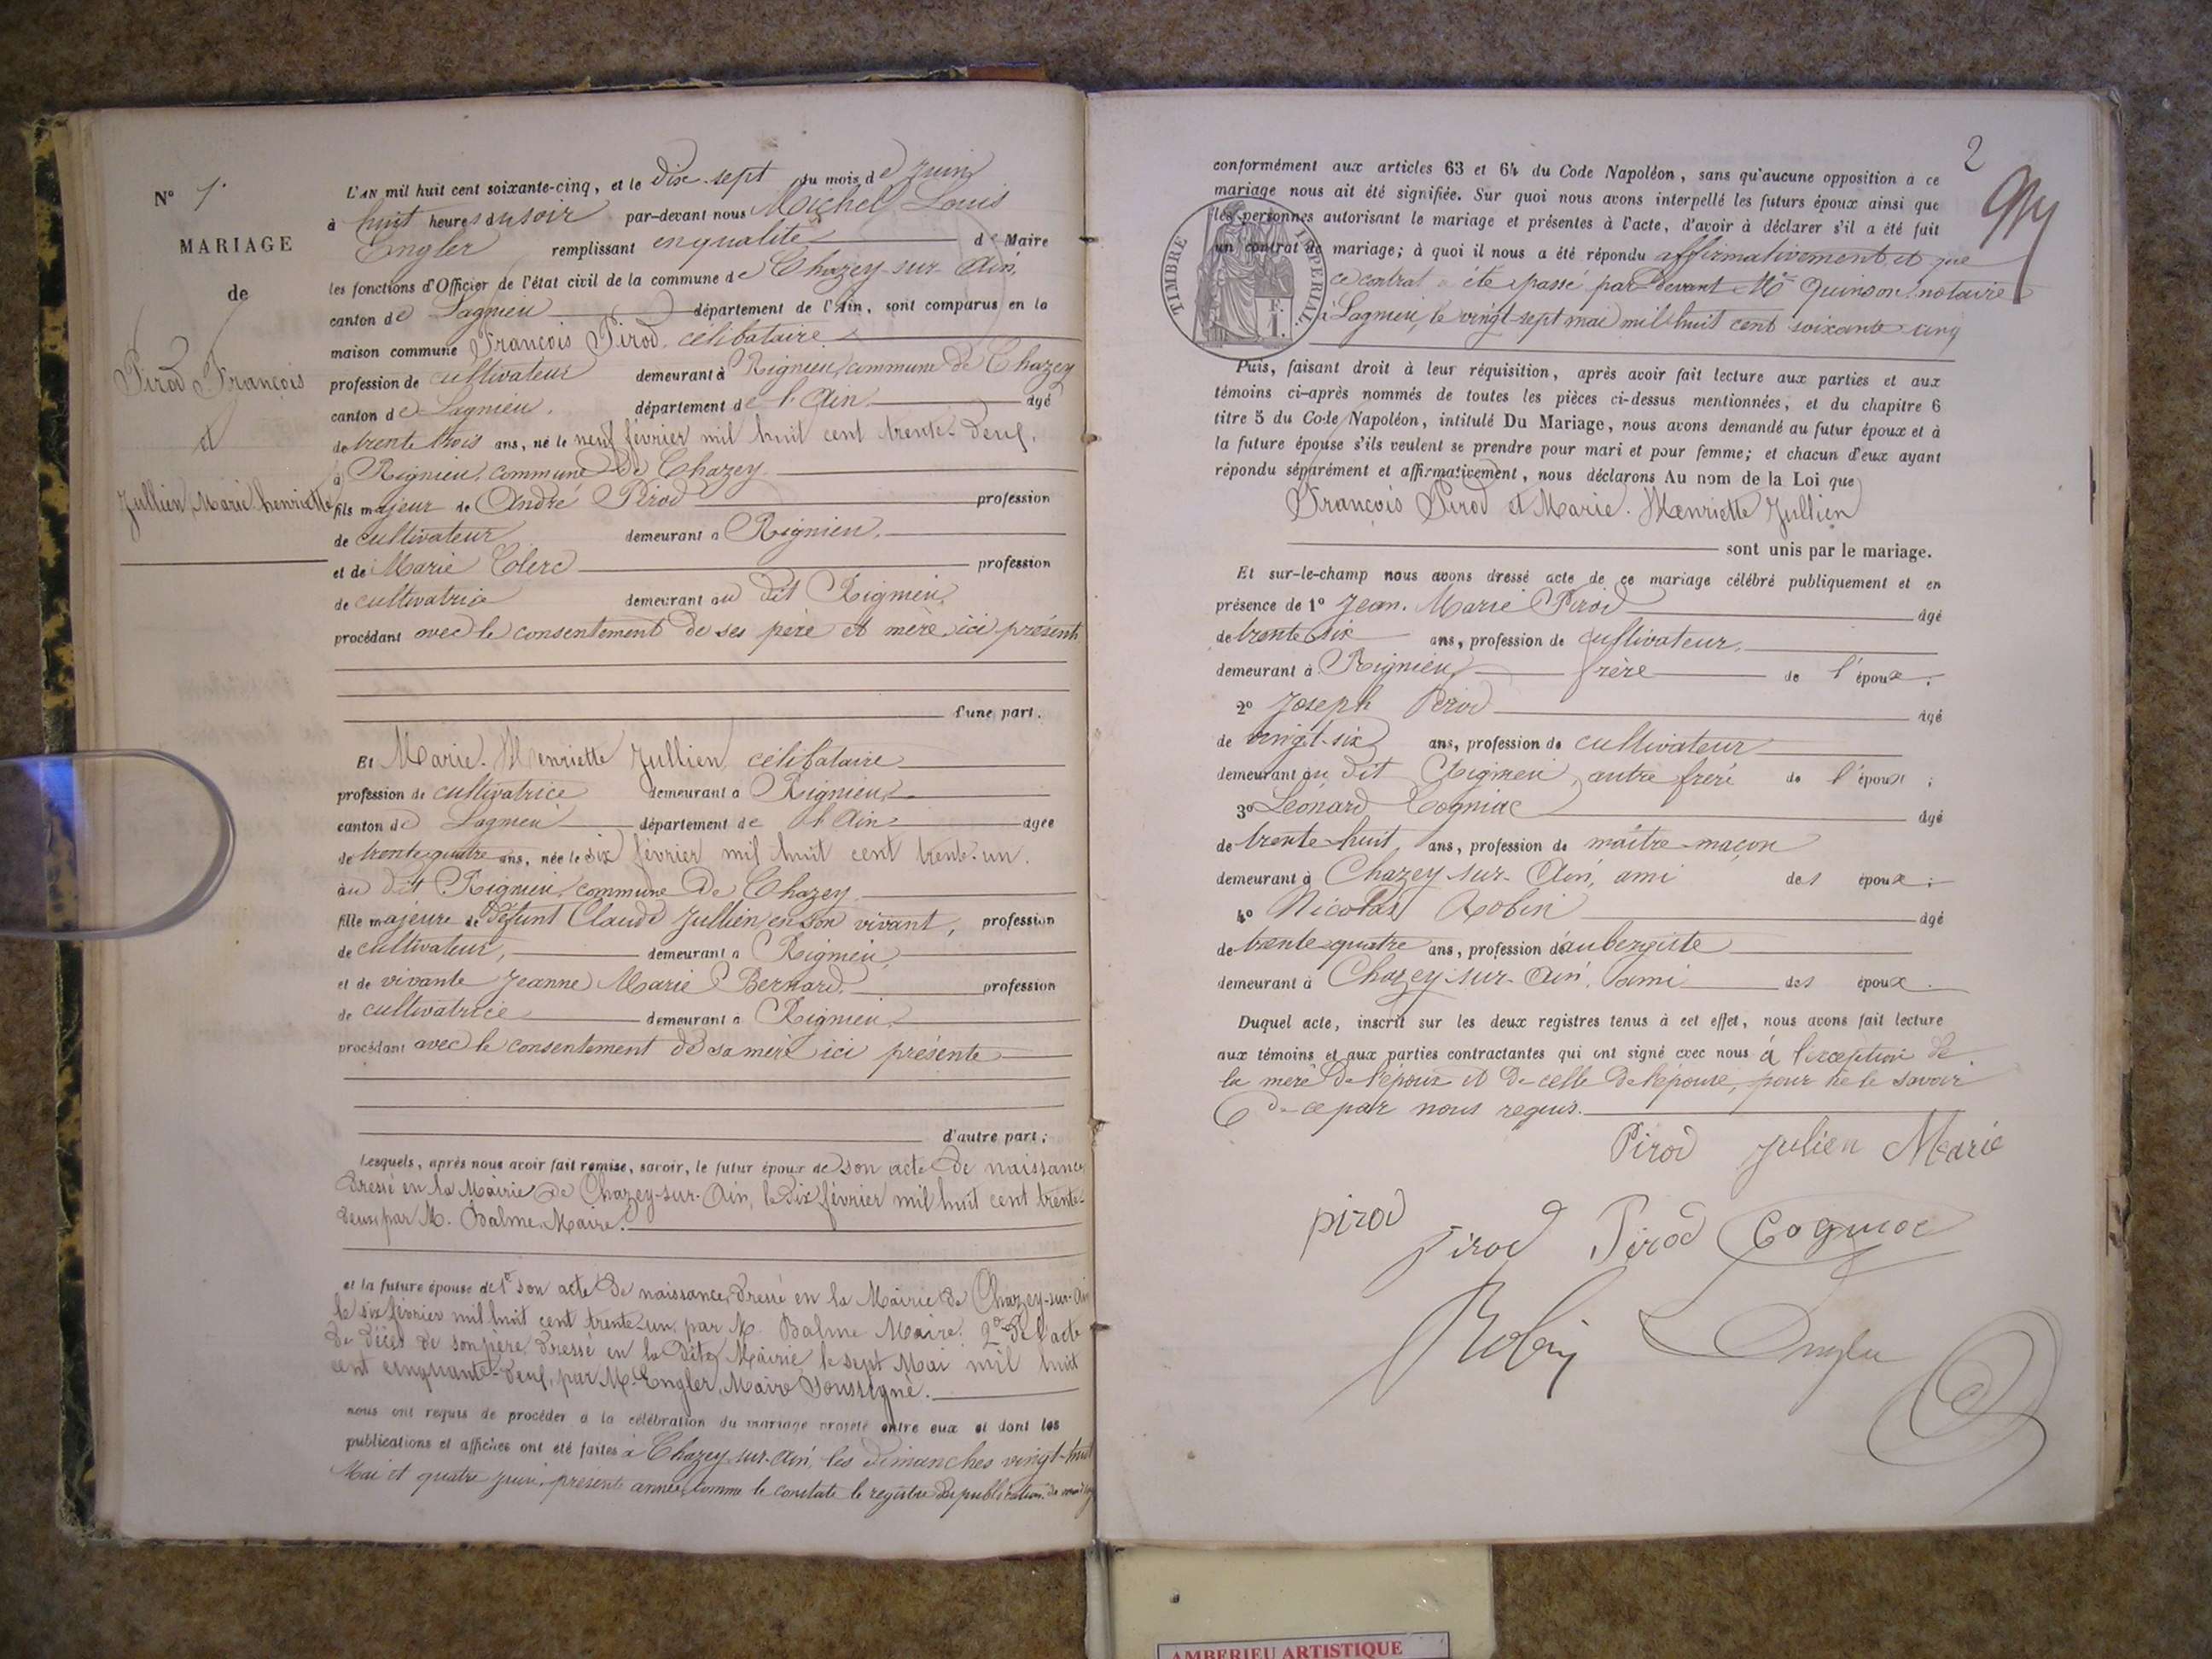 N° 1.
MARIAGE
de
Pirod François
et
Jullien Marie henriette
L'AN mil huit cent soixante-cinq, et le Dix-sept du mois de Juin
à huit heures du soir par-devant nous Michel Louis
Engler remplissant en qualité de Maire
les fonctions d'Officier de l'état civil de la commune de Chazey-sur-Ain,
canton de Lagnieu département de l'Ain, sont comparus en la
maison commune François Pirod, célibataire
profession de cultivateur demeurant à Rignieu, commune de Chazey
canton de Lagnieu. département de l'Ain. âgé
de trente trois ans, né le neuf février mil huit cent trente-deux,
à Rignieu, commune de Chazey.
fils majeur de André Pirod profession
de cultivateur demeurant à Rignieu.
et de Marie Clerc profession
de cultivatrice demeurant au dit Rignieu,
procédant avec le consentement de ses père et mère, ici présents
d'une part.
Et Marie-Henriette Jullien, célibataire
profession de cultivatrice demeurant à Rignieu,
canton de Lagnieu département de l'Ain âgée
de trente-quatre ans, née le six février mil huit cent trente-un.
au dit Rignieu, commune de Chazey
fille majeure de défunt Claude Jullien, en son vivant, profession
de cultivateur, demeurant à Rignieu,
et de vivante Jeanne Marie Bernard. profession
de cultivatrice demeurant à Rignieu,
procédant avec le consentement de sa mère ici présente
d'autre part;
Lesquels, après nous avoir fait remise, savoir, le futur époux de son acte de naissance
dressé en la Mairie de Chazey-sur-Ain, le dix février mil huit cent trente-
deux par M. Balme, Maire.
et la future épouse de 1° son acte de naissance, dressé en la Mairie de Chazey-sur-Ain
le six février mil huit cent trente un, par M. Balme Maire. 2° de l'acte
de décès de son père, dressé en la dite Mairie le sept Mai mil huit
cent cinquante-deux, par M. Engler, Maire soussigné.
nous ont requis de procéder à la célébration du mariage projeté entre eux et dont les
publications et affiches ont été faites à Chazey-sur-Ain, les dimanches vingt-huit
Mai et quatre Juin, présente année, comme le constate le registre des publications
2
conformément aux articles 63 et 64 du Code Napoléon, sans qu'aucune opposition à ce
mariage nous ait été signifiée. Sur quoi nous avons interpellé les futurs époux ainsi que
les personnes autorisant le mariage et présentes à l'acte, d'avoir à déclarer s'il a été fait
un contrat de mariage; à quoi il nous a été répondu affirmativement et que
ce contrat a été passé par devant Me Quinson, notaire
à Lagnieu, le vingt-sept mai mil huit cent soixante-cinq
TIMBRE IMPERIAL.
F.
1.
Puis, faisant droit à leur réquisition, après avoir fait lecture aux parties et aux
témoins ci-après nommés de toutes les pièces ci-dessus mentionnées, et du chapitre 6
titre 5 du Code Napoléon, intitulé Du Mariage, nous avons demandé au futur époux et à
la future épouse s'ils veulent se prendre pour mari et pour femme; et chacun d'eux ayant
répondu séparément et affirmativement, nous déclarons Au nom de la Loi que
François Pirod et Marie-Henriette Jullien
sont unis par le mariage.
Et sur-le-champ nous avons dressé acte de ce mariage célébré publiquement et en
présence de 1° Jean-Marie Pirod âgé
de trente six ans, profession de cultivateur,
demeurant à Rignieu, frère de l'époux;
2° Joseph Pirod âgé
de vingt-six ans, profession de cultivateur
demeurant au dit Rignieu, autre frère de l'époux;
3° Léonard Cogniac âgé
de trente-huit, ans, profession de maître-maçon
demeurant à Chazey-sur-Ain, ami des époux;
4° Nicolas Robin âgé
de trente-quatre ans, profession d'aubergiste
demeurant à Chazey-sur-Ain, ami des époux.
Duquel acte, inscrit sur les deux registres tenus à cet effet, nous avons fait lecture
aux témoins et aux parties contractantes qui ont signé avec nous à l'exception de
la mère de l'époux et de celle de l'épouse, pour ne le savoir
de ce par nous requis.
Pirod Julien Marie
pirod Pirod Pirod Cogniac
Robin Engler
AMBERIEU ARTISTIQUE